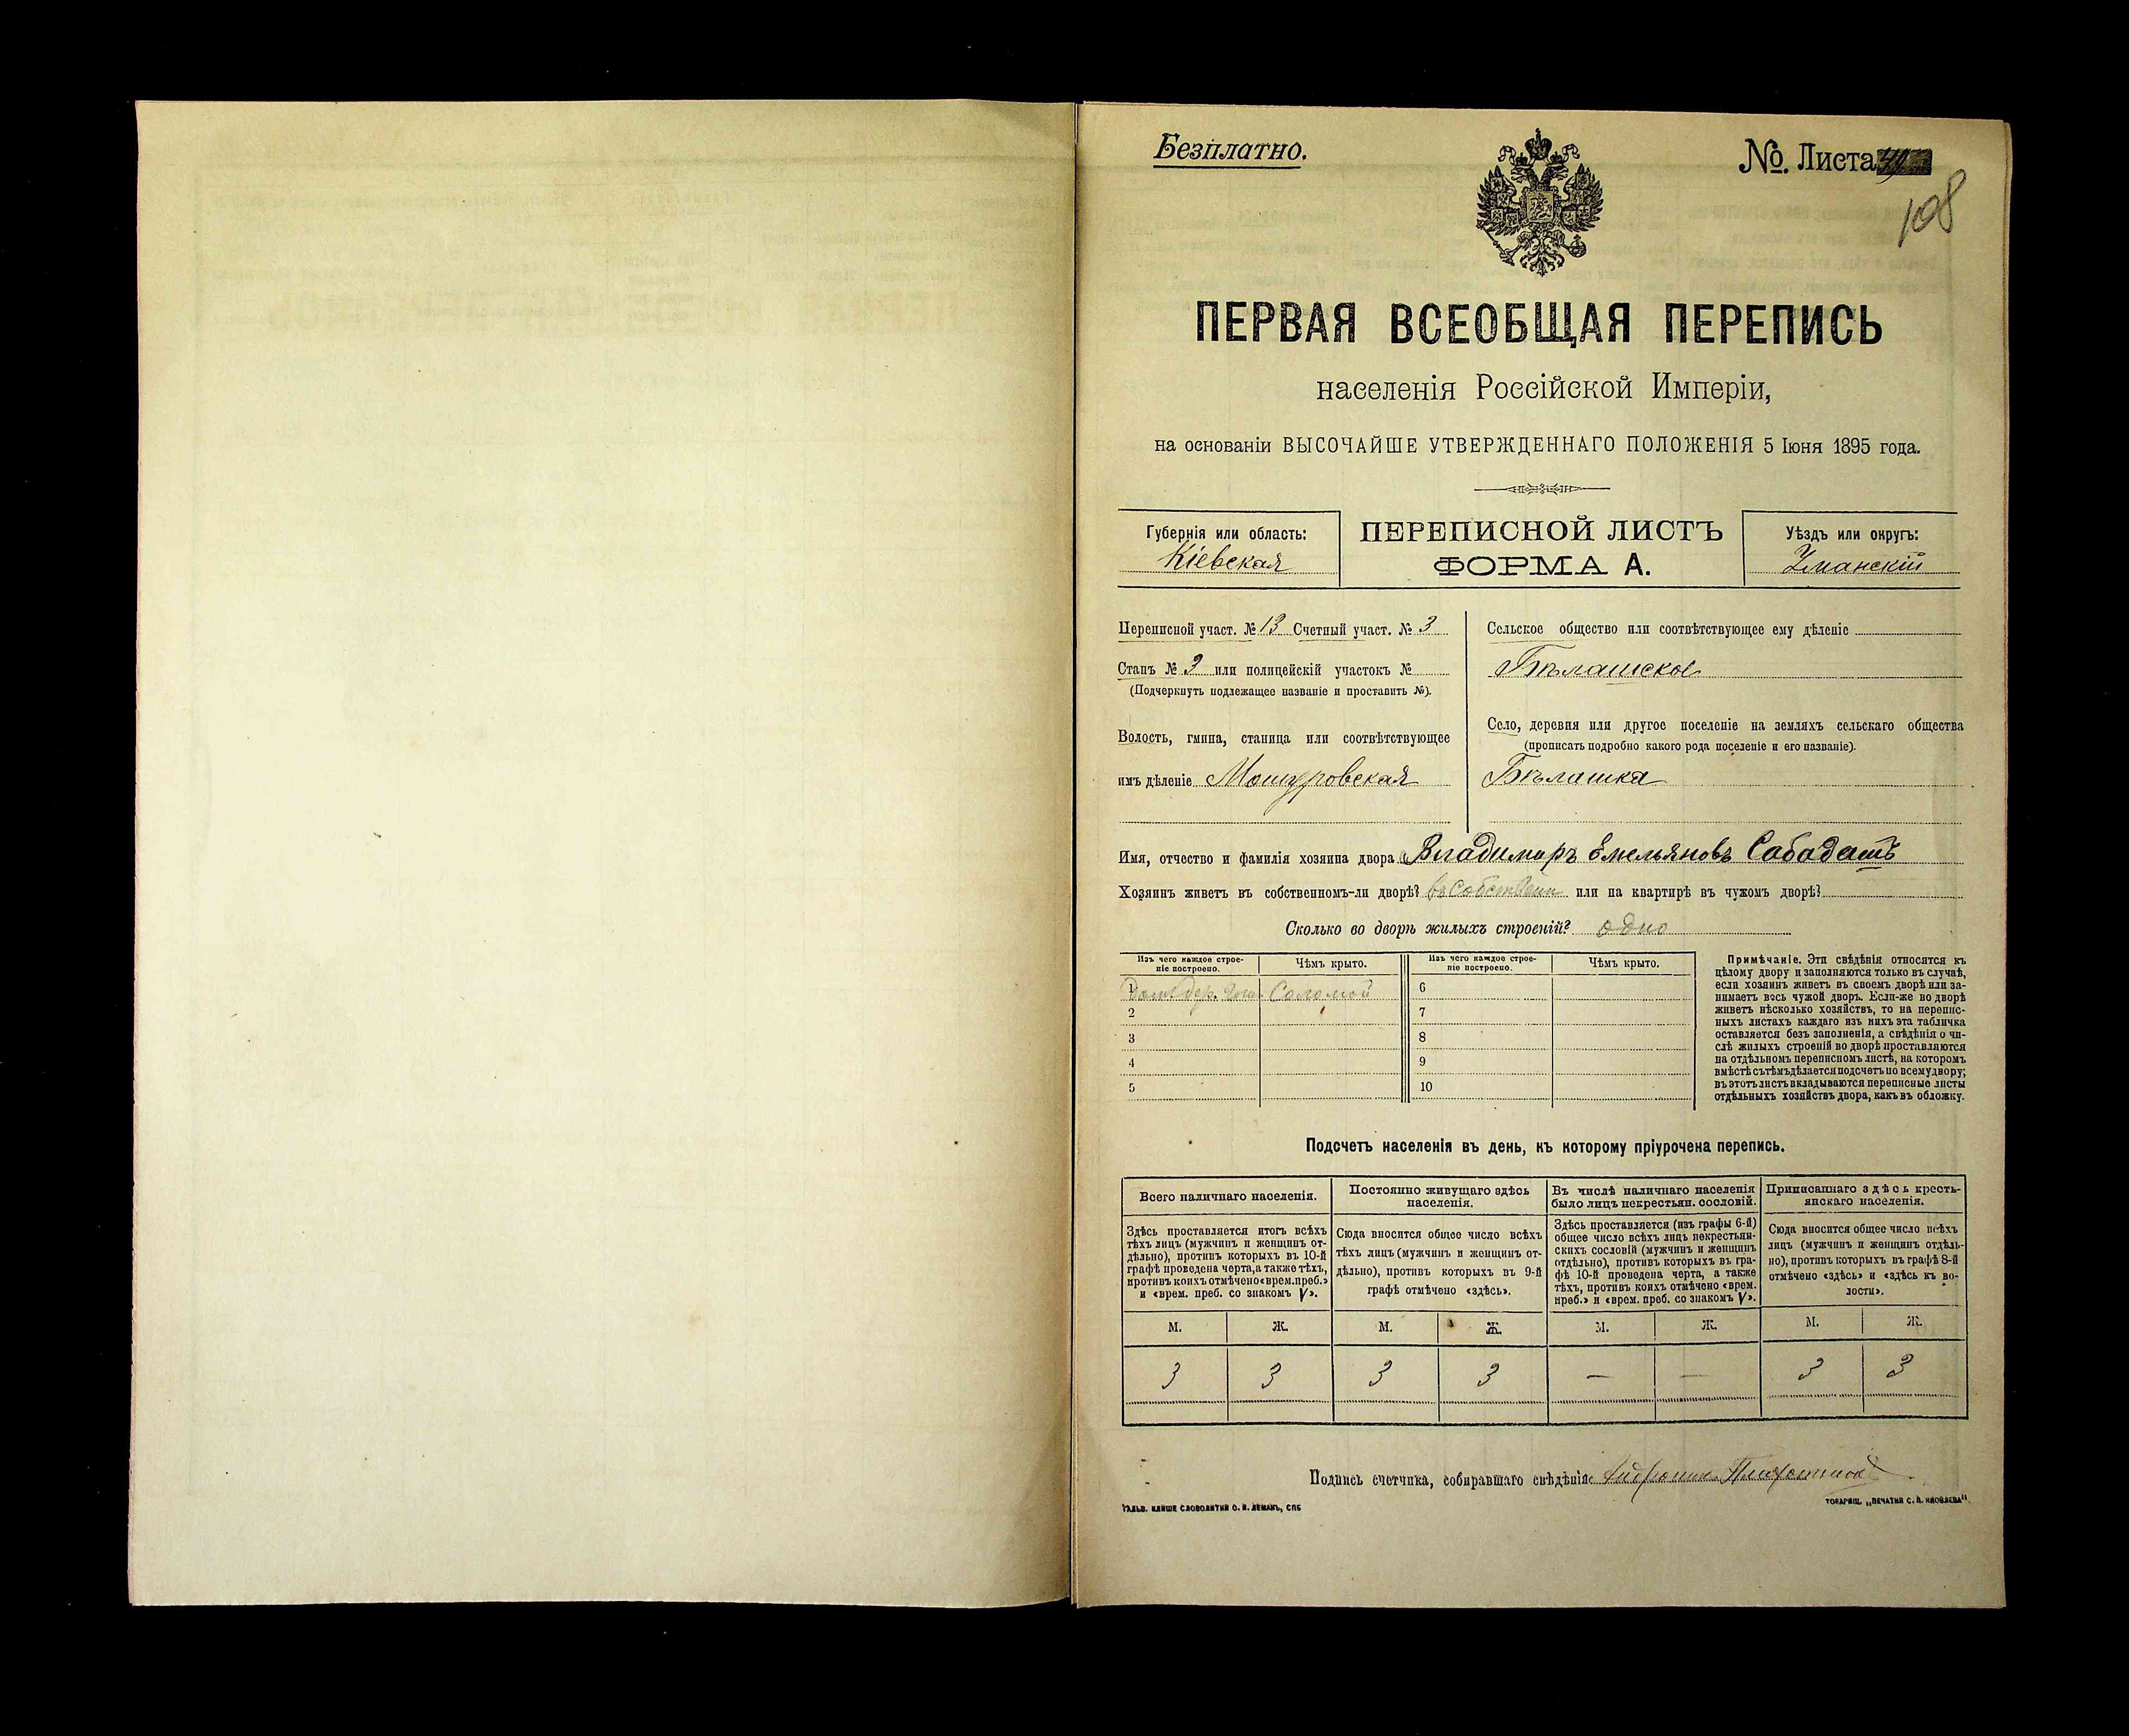 Безплатно.
№. Листа 49
108
ПЕРВАЯ ВСЕОБЩАЯ ПЕРЕПИСЬ
населенія Россійской Имперіи,
на основаніи ВЫСОЧАЙШЕ УТВЕРЖДЕННАГО ПОЛОЖЕНІЯ 5 Іюня 1895 года.
Губернія или область:
Кіевская
ПЕРЕПИСНОЙ ЛИСТЪ
ФОРМА А.
Уѣздъ или округъ:
Уманскій
Переписной участ. № 13 Счетный участ. № 3
Станъ № 3 или полицейскій участокъ №
(Подчеркнуть подлежащее названіе и проставить №).
Волость, гмина, станица или соотвѣтствующее
имъ дѣленіе Мошуровская
Сельское общество или соотвѣтствующее ему дѣленіе
Бѣлашское
Село, деревня или другое поселеніе на земляхъ сельскаго общества
(прописать подробно какого рода поселеніе и его названіе).
Бѣлашка
Имя, отчество и фамилія хозяина двора Владимиръ Емельяновъ Сабадашъ
Хозяинъ живетъ въ собственномъ-ли дворѣ? въ собствен или на квартирѣ въ чужомъ дворѣ?
Сколько во дворѣ жилыхъ строеній? одно
Изъ чего каждое строе-
ніе построено.
Чѣмъ крыто.
Изъ чего каждое строе-
ніе построено.
Чѣмъ крыто.
1 дер. Соломой
2
3
4
5
6
7
8
9
10
Примѣчаніе. Эти свѣдѣнія относятся къ
цѣлому двору и заполняются только въ случаѣ,
если хозяинъ живетъ въ своемъ дворѣ или за-
нимаетъ весь чужой дворъ. Если-же во дворѣ
живетъ нѣсколько хозяйствъ, то на перепис-
ныхъ листахъ каждаго изъ нихъ эта табличка
оставляется безъ заполненія, а свѣдѣнія о чи-
слѣ жилыхъ строеній во дворѣ проставляются
на отдѣльномъ переписномъ листѣ, на которомъ
вмѣстѣ съ тѣмъ дѣлается подсчетъ по всему двору;
въ этотъ листъ вкладываются переписные листы
отдѣльныхъ хозяйствъ двора, какъ въ обложку.
Подсчетъ населенія въ день, къ которому пріурочена перепись.
Всего наличнаго населенія.
Здѣсь проставляется итогъ всѣхъ
тѣхъ лицъ (мужчинъ и женщинъ от-
дѣльно), противъ которыхъ въ 10-й
графѣ проведена черта, а также тѣхъ,
противъ коихъ отмѣчено «врем. преб.»
и «врем. преб. со знакомъ V».
Постоянно живущаго здѣсь
населенія.
Сюда вносится общее число всѣхъ
тѣхъ лицъ (мужчинъ и женщинъ от-
дѣльно), противъ которыхъ въ 9-й
графѣ отмѣчено «здѣсь».
Въ числѣ наличнаго населенія
было лицъ некрестьян. сословій.
Здѣсь проставляется (изъ графы 6-й)
общее число всѣхъ лицъ некрестьян-
скихъ сословій (мужчинъ и женщинъ
отдѣльно), противъ которыхъ въ гра-
фѣ 10-й проведена черта, а также
тѣхъ, противъ коихъ отмѣчено «врем.
преб.» и «врем. преб. со знакомъ V».
Приписаннаго здѣсь кресть-
янскаго населенія.
Сюда вносится общее число всѣхъ
лицъ (мужчинъ и женщинъ отдѣль-
но), противъ которыхъ въ графѣ 8-й
отмѣчено «здѣсь» и «здѣсь къ во-
лости».
М. Ж. М. Ж. М. Ж. М. Ж.
3 3 3 3 — — 3 3
Подпись счетчика, собиравшаго свѣдѣнія:
ГАЛЬВ. КЛИШЕ СЛОВОЛИТНИ О. И. ЛЕМАНЪ, СПБ
ТОВАРИЩ. „ПЕЧАТНЯ С. П. ЯКОВЛЕВА“.